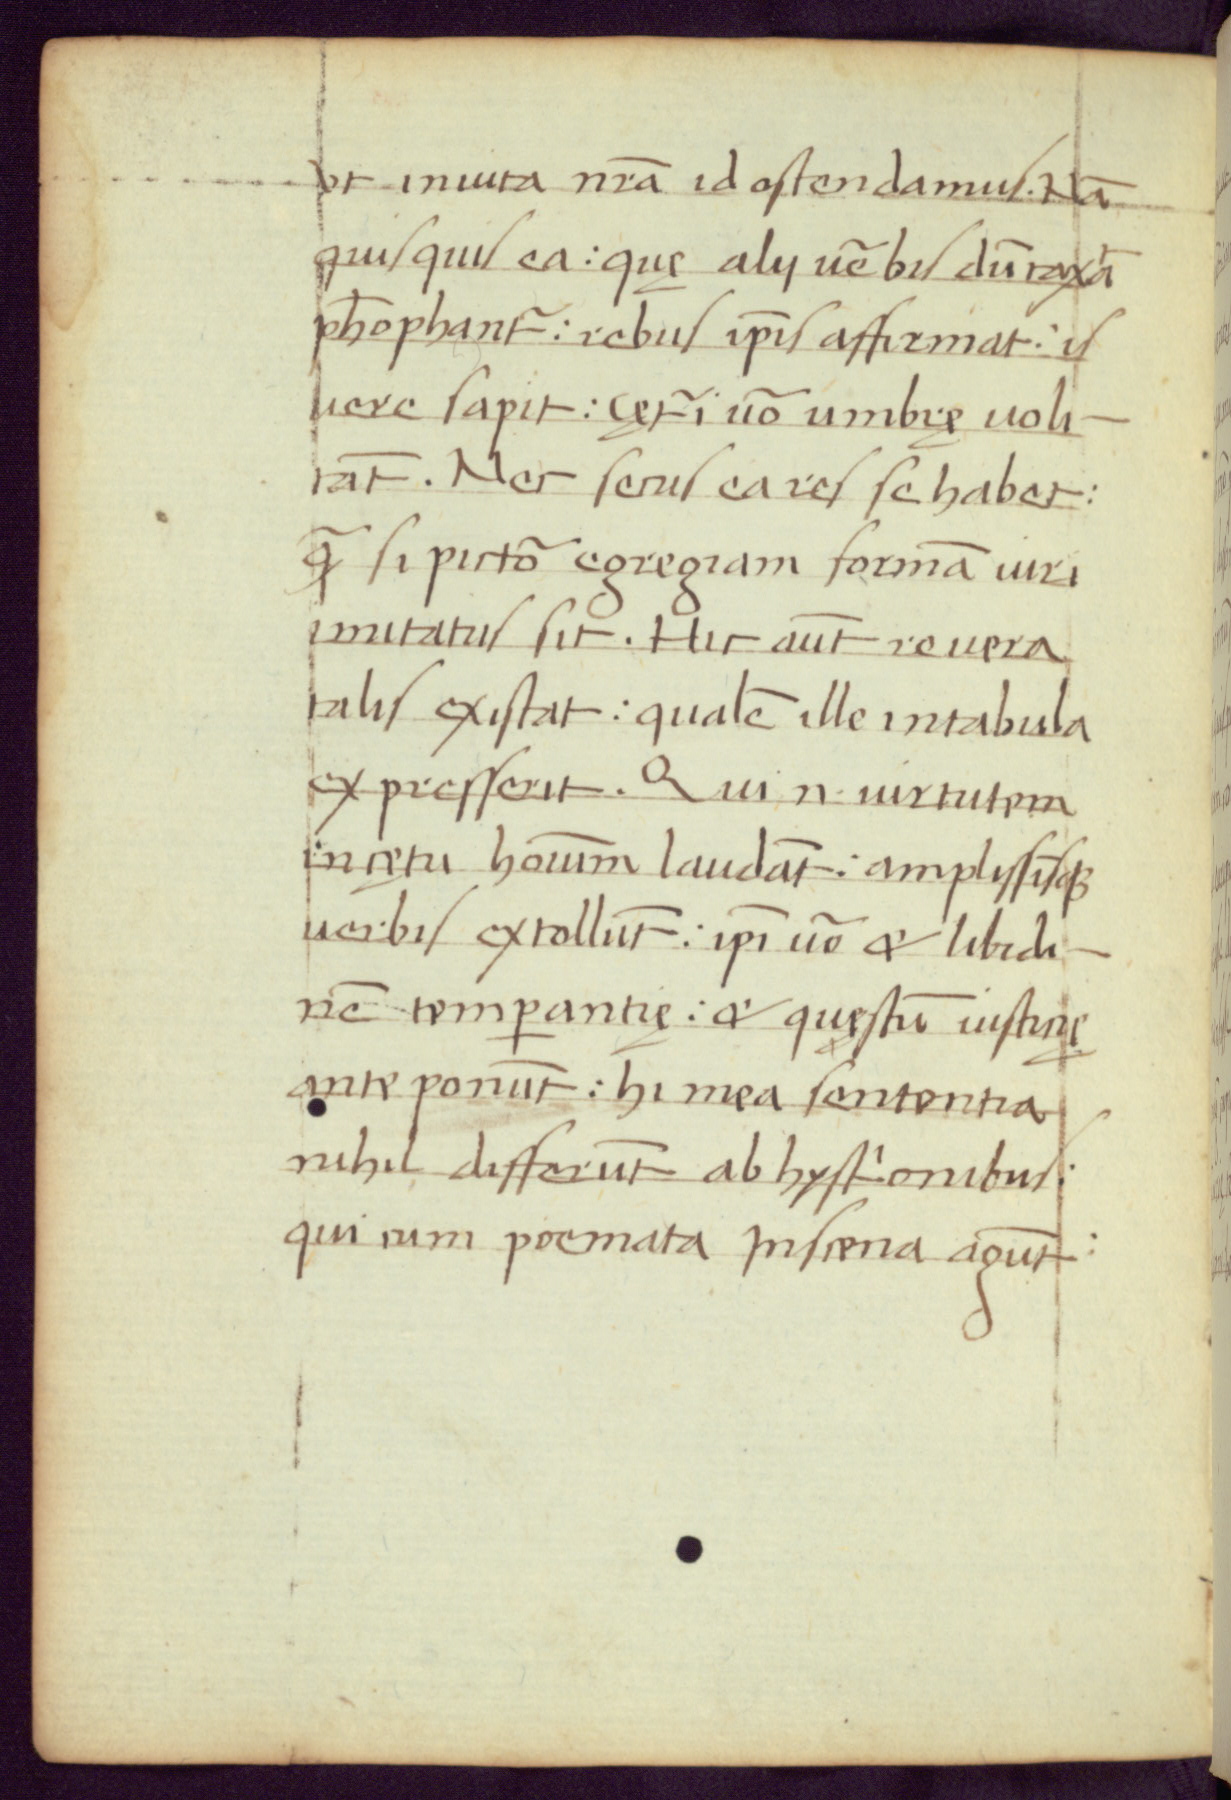 ut in uita nr̄a id ostendamus. Nā
quisquis ea: quę alij uēbis dūtaxat
ph̄ophant̄: rebus ip̄is affirmat: is
uere sapit: cęt̄i uō umbrę uoli-
tāt. Nec secus ea res se habet:
q̄ si pictō egregiam formā uiri
imitatus sit. Hic aūt re uera
talis existat: qualē ille in tabula
expresserit. Qui n. uirtutem
in cętu hoīum laudāt: amplissīsq;
uerbis extollūt: ip̄i uō & libidi-
nē temꝑantię: & quęstū iusticię
ante ponūt: hi mea sententia
nihil differūt ab hystrionibus:
qui cum poemata in scena agūt: